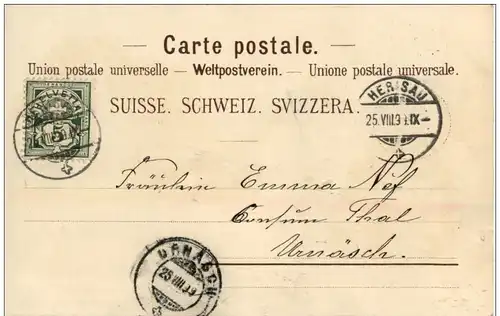 Carte postale.
Union postale universelle. — Weltpostverein. — Unione postale universale.
SUISSE. SCHWEIZ. SVIZZERA.
HERISAU
25.VIII.9
IX
Fräulein Emma Nef
Consum Thal
Urnäsch.
URNÄSCH
25.VIII.99